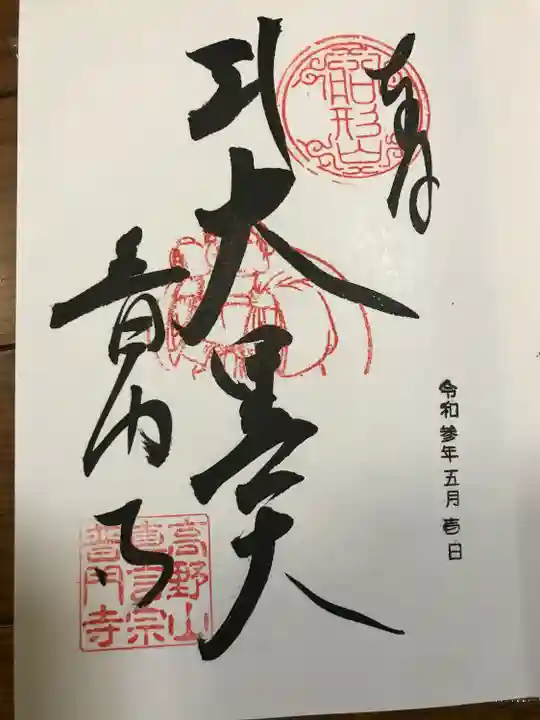 奉拝
船形山
大黒天
普門寺
高野山
真言宗
普門寺
令和参年五月壱日